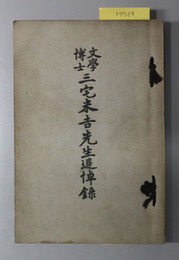 文學博士三宅米吉先生追悼錄